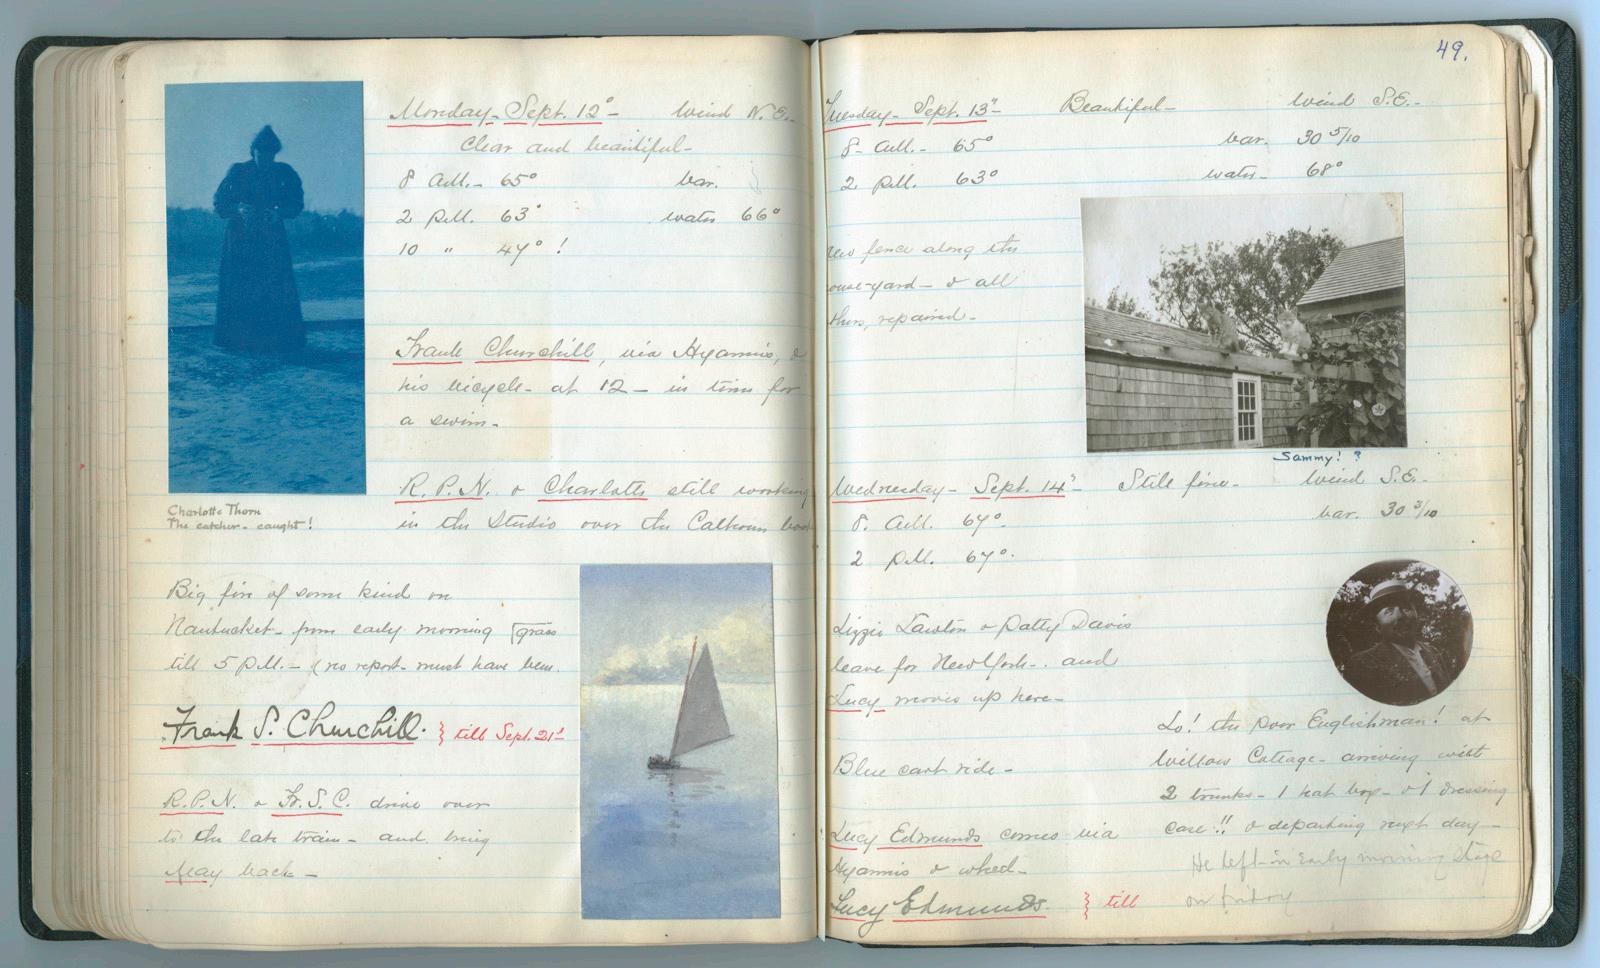 Monday - Sept. 12" - Wind N.E. -
Clear and beautiful -
8 A.M. - 65° bar.
2 P.M. 63° water 66°
10 " 47° !
Frank Churchill, via Hyannis, &
his bicycle - at 12 - in time for
a swim -
R.P.N. & Charlotte still working
in the Studio over the Calhoun book
Charlotte Thorn
The catcher - caught!
Big fire of some kind on
Nantucket - from early morning [grass
till 5 P.M. - (no report - must have been
Frank S. Churchill. } till Sept. 21st
R.P.N. & F.S.C. drive over
to the late train - and bring
May back -
49.
Tuesday - Sept. 13" - Beautiful - Wind S.E. -
8 - A.M. - 65° bar. 30 5/10
2 P.M. 63° water - 68°
new fence along the
ouse-yard - & all
thers, repaired -
Sammy! ?
Wednesday - Sept. 14" - Still fine - Wind S.E. -
8. A.M. 67°. bar. 30 3/10
2 P.M. 67°.
Lizzie Lawton & Patty Davis
leave for New York - and
Lucy moves up here -
Blue cart ride -
Lucy Edmunds comes via
Hyannis & wheel -
Lucy Edmunds. } till
Lo! the poor Englishman! at
Willow Cottage - arriving with
2 trunks - 1 hat box - & 1 dressing
case!! & departing next day -
He left in early morning stage
on Friday